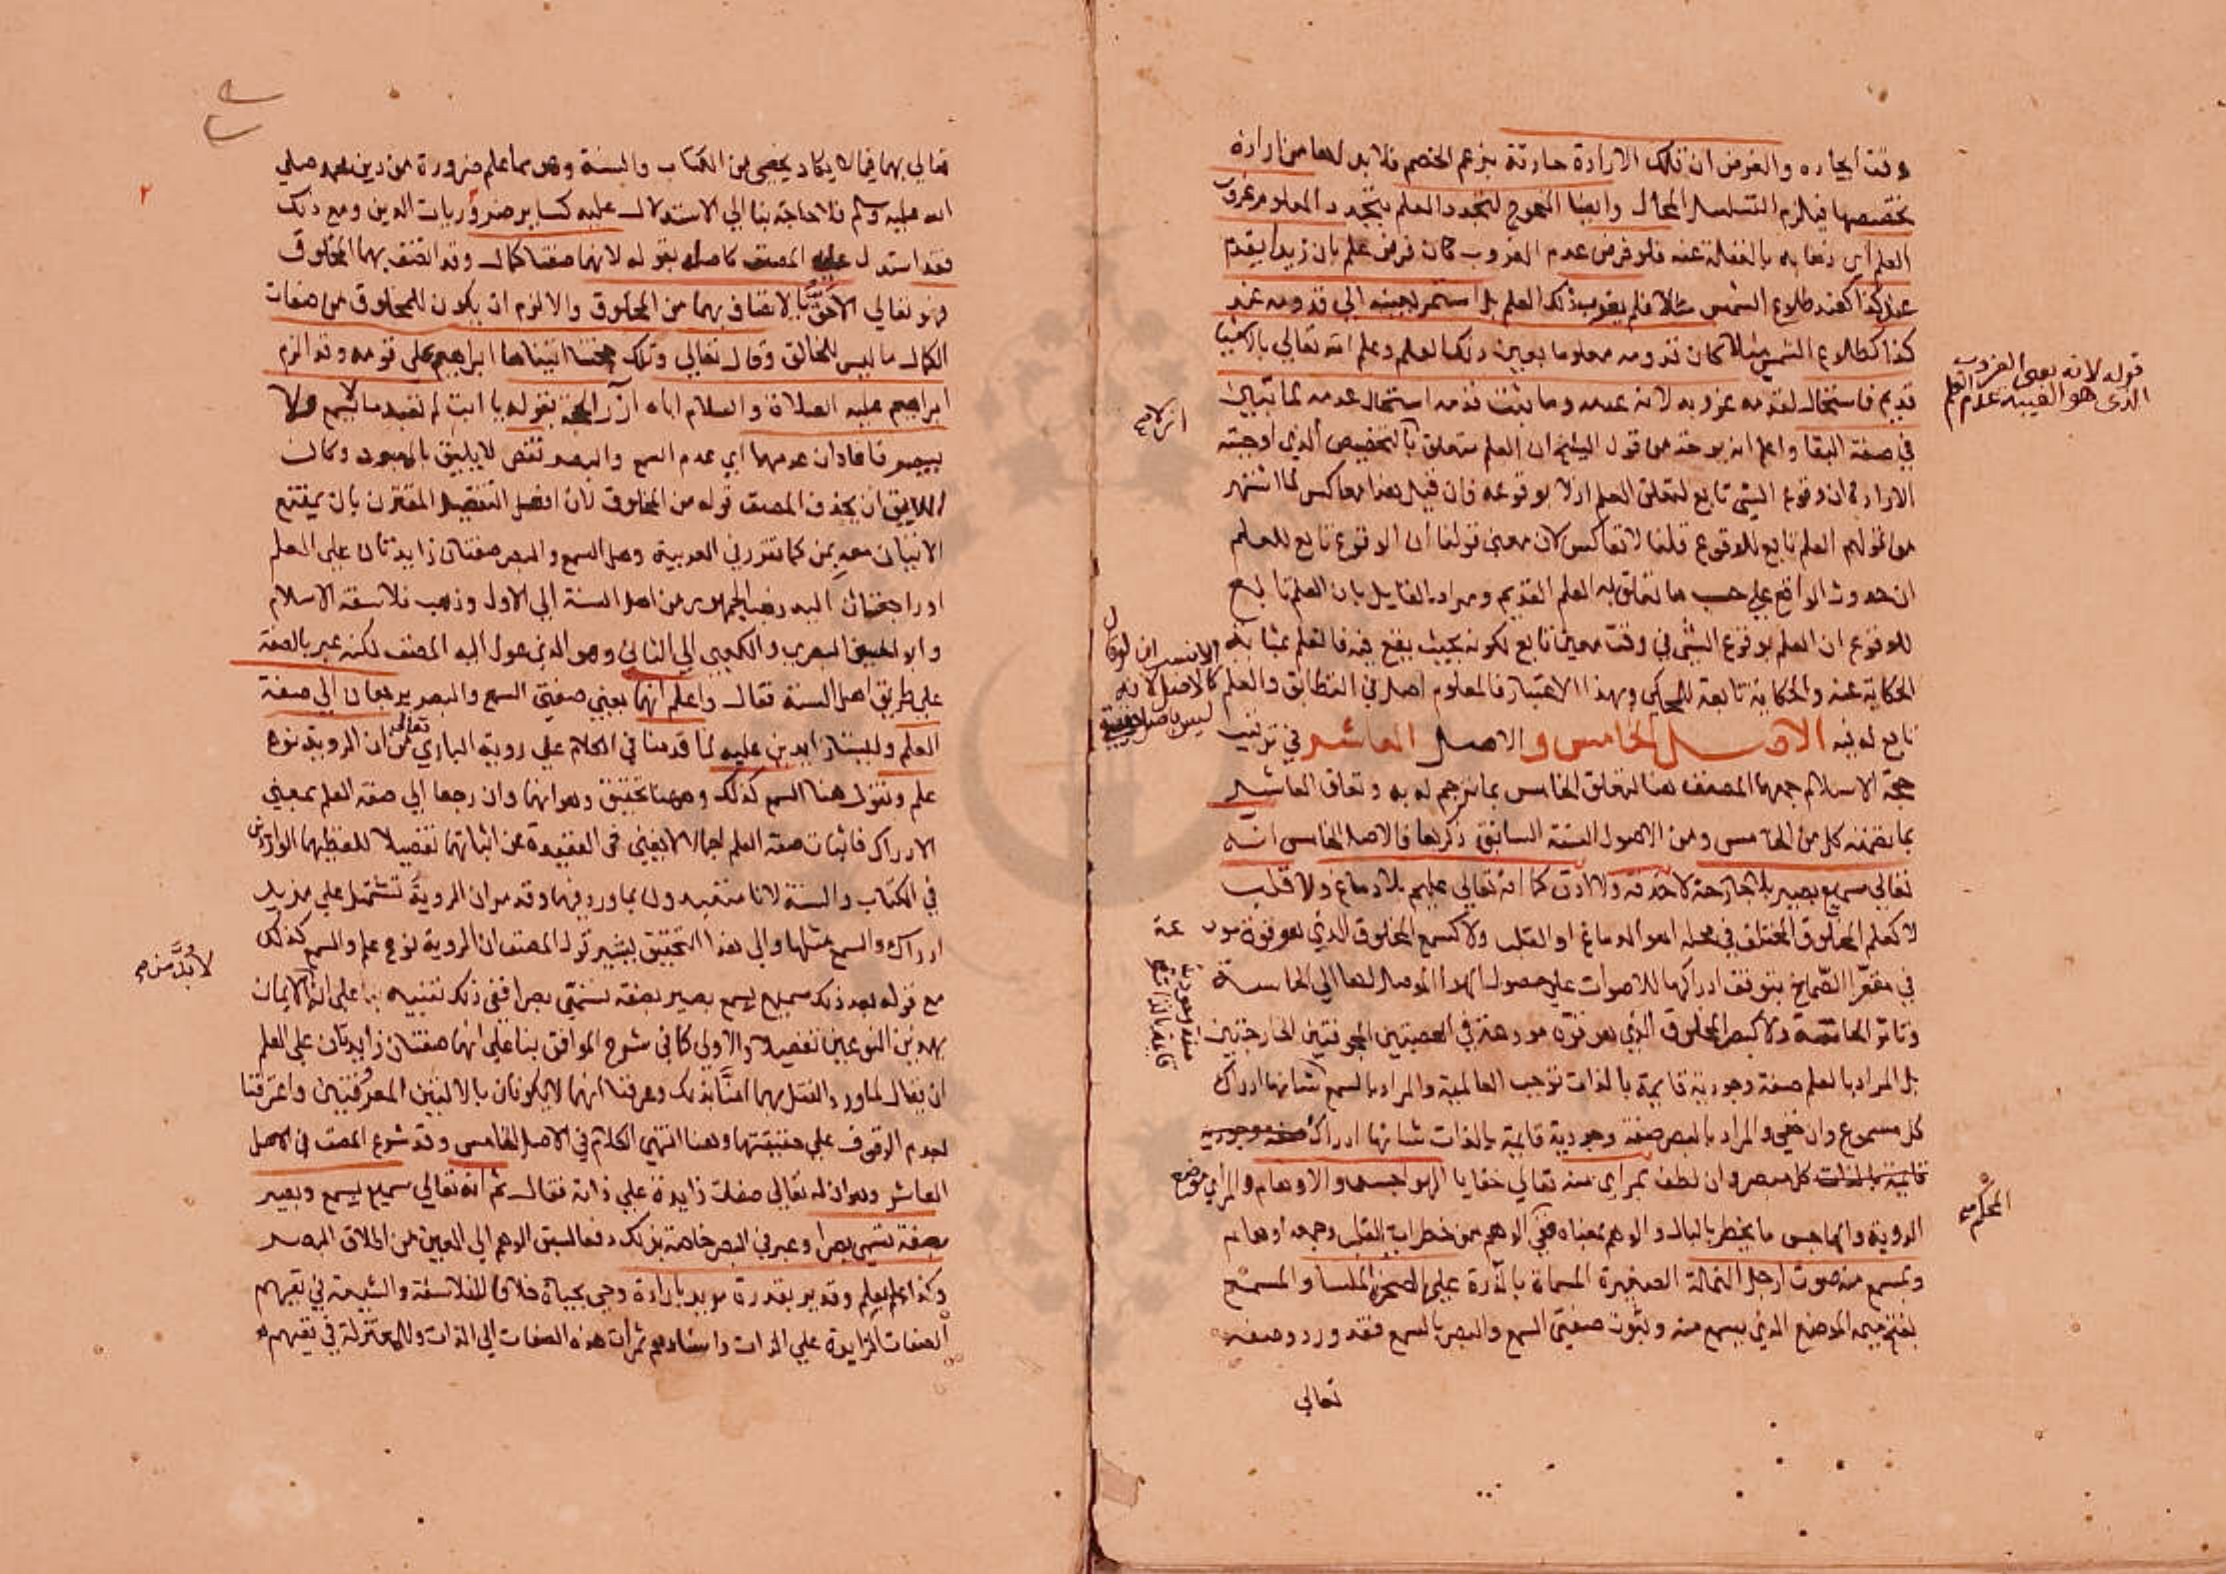 وقت ايجاده والفرض ان تلك الارادة حادثة بزعم الخصم فلابد لها من ارادة
تخصصها فيلزم التسلسل المحال وايضا المحوج لتجدد العلم بتجدد المعلوم عزوب
العلم اى ذهابه بالغفلة عنه فلو فرض عدم العزوب كان فرض علم بان زيدا يقدم
عند كذا كعند طلوع الشمس مثلا فلم يعزب ذلك العلم بل استمر بعينه الي قدومه عند
كذا كطلوع الشمس مثلا كان قدومه معلوما بعين ذلك العلم وعلم الله تعالي بالاشيا
قديم فاستحال لقدمه عزوبه لانه عدمه وما يثبت قدمه استحال عدمه لما تبين
في صفة البقا واعلم انه يوخذ من قول ان العلم متعلق بالتخصيص الذي اوجبته
الارادة ان وقوع الشي تابع لتعلق العلم ازلا بوقوعه فان قيل هذا معاكس لما اشتهر
من قولهم العلم تابع للوقوع قلنا لا تعاكس لان معنى قولنا ان الوقوع تابع للعلم
ان حدوث الواقع علي حسب ما تعلق به العلم القديم ومراد القايل بان العلم تابع
للوقوع ان العلم بوقوع الشي في وقت معين تابع لكونه بحيث يقع فيه فالعلم بمثابة
الحكاية عنه والحكاية تابعة للمحكي وبهذا الاعتبار فالمعلوم اصل في التطابق والعلم
تابع له فيه الاصل الخامس والاصل العاشر في ترتيب
حجة الاسلام جمعهما المصنف هنا لتعلق الخامس بما ترجم له به وتعلق العاشر
بما تضمنه كل من الخامس ومن الاصول الستة السابق ذكرها فالاصل الخامس انه
تعالي سميع بصير بلا جارحة لا حدقة ولا اذن كما انه تعالي عليم بلا دماغ ولا قلب
لا كعلم المخلوق المختلف في محله اهو الدماغ او القلب ولا كسمع المخلوق الذي هو قوة مود عة
في مقعر الصماخ يتوقف ادراكها للاصوات علي حصول الهوا الموصل لها الي الحاسة
وتاثر الحاسة ولا كبصر المخلوق الذي هو قوة مودعة في العصبتين المجوفتين الخارجتين
بل المراد بالعلم صفة وجودية قايمة بالذات توجب العالمية والمراد بالسمع شانها ادراك
كل مسموع وان خفي والمراد بالبصر صفة وجودية قايمة بالذات شانها ادراك
كل مبصر وان لطف بمراى منه تعالي خفايا الهواجس والاوهام والمرأي موضع
الروية والهاجس ما يخطر بالبال والوهم بمعناه فهي الوهم من خطرات القلب وجمعه اوهام
وبمسمع منه صوت ارجل النملة الصغيرة المسماة بالذرة علي الصخرة الملسا والمسمع
بفتح ميمه الموضع الذي يسمع منه وثبوت صفتي السمع والبصر بالسمع فقد ورد وصفه
تعالي
قوله لانه يعنى العزوب
الذى هو الغيبة عدم العلم
لان المعلوم
ليس باصل
صفة وجودية
قايمة بالذات
المحكم
تعالي بهما فيما لا يكاد يحصى من الكتاب والسنة وهو مما علم ضرورة من دين محمد صلي
الله عليه وسلم فلا حاجة بنا الي الاستدلال عليه كساير ضروريات الدين ومع ذلك
فقد استدل عليه المصنف كاصله بقوله لانهما صفتا كمال وقد اتصف بهما المخلوق
فهو تعالي الاحق بالاتصاف بهما من المخلوق والا لزم ان يكون للمخلوق من صفات
الكمال ما ليس للخالق وقال تعالي وتلك حجتنا اتيناها ابراهيم علي قومه وقد الزم
ابراهيم عليه الصلاة والسلام اباه آزر الحجة بقوله يا ابت لم تعبد ما لا يسمع ولا
يبصر فافاد ان عدمهما اي عدم السمع والبصر نقص لا يليق بالمعبود وكان
اللايق ان يحذف المصنف قوله من المخلوق لان افعل التفضيل المقترن بال يمتنع
الاتيان معه بمن كما تقرر في العربية وهل السمع والبصر صفتان زايدتان علي العلم
او راجعتان اليه ذهب الجمهور من اهل السنة الي الاول وذهب فلاسفة الاسلام
وابو الحسين البصري والكعبي الي الثاني وهو الذي عول اليه المصنف لكنه عبر بالصفة
علي طريق اهل السنة فقال واعلم انهما يعني صفتي السمع والبصر يرجعان الي صفة
العلم وليستا زايدين عليه لما قدمنا في الكلام علي روية الباري تعالى من ان الروية نوع
علم ونقول هنا السمع كذلك وههنا تحقيق وهو انهما وان رجعا الي صفة العلم بمعنى
الادراك فاثبات صفة العلم اجمالا لا يغني في العقيدة عن اثباتهما تفصيلا بلفظهما الواردين
في الكتاب والسنة لانا متعبدون بما ورد فيهما وقد مر ان الروية تشتمل علي مزيد
ادراك والسمع مثلها والي هذا التحقيق يشير قول المصنف ان الروية نوع علم والسمع كذلك
مع قوله بعد ذلك سميع بسمع بصير بصفة تسمى بصرا ففي ذلك تنبيه علي ان الايمان
بهذين النوعين تفصيلا والاولي كما في شرح المواقف بناء علي انهما صفتان زايدتان علي العلم
ان يقال لما ورد النقل بهما امنا بذلك وعرفنا انهما لا يكونان بالالتين المعروفتين واعترفنا
بعدم الوقوف علي حقيقتهما وهنا انتهى الكلام في الاصل الخامس وقد شرع المصنف في الاصل
العاشر وهو ان له تعالي صفات زايدة علي ذاته فقال ثم انه تعالي سميع بسمع وبصير
بصفة تسمى بصرا وعبر في البصر خاصة بذلك دفعا لسبق الوهم الي العين من اطلاق البصر
وكذا عليم بعلم وقدير بقدرة مريد بارادة وحي بحياة خلافا للفلاسفة والشيعة في نفيهم
الصفات الزايدة علي الذات واسنادهم ثمرات هذه الصفات الي الذات وللمعتزلة في نفيهم
لا بد منه
٢